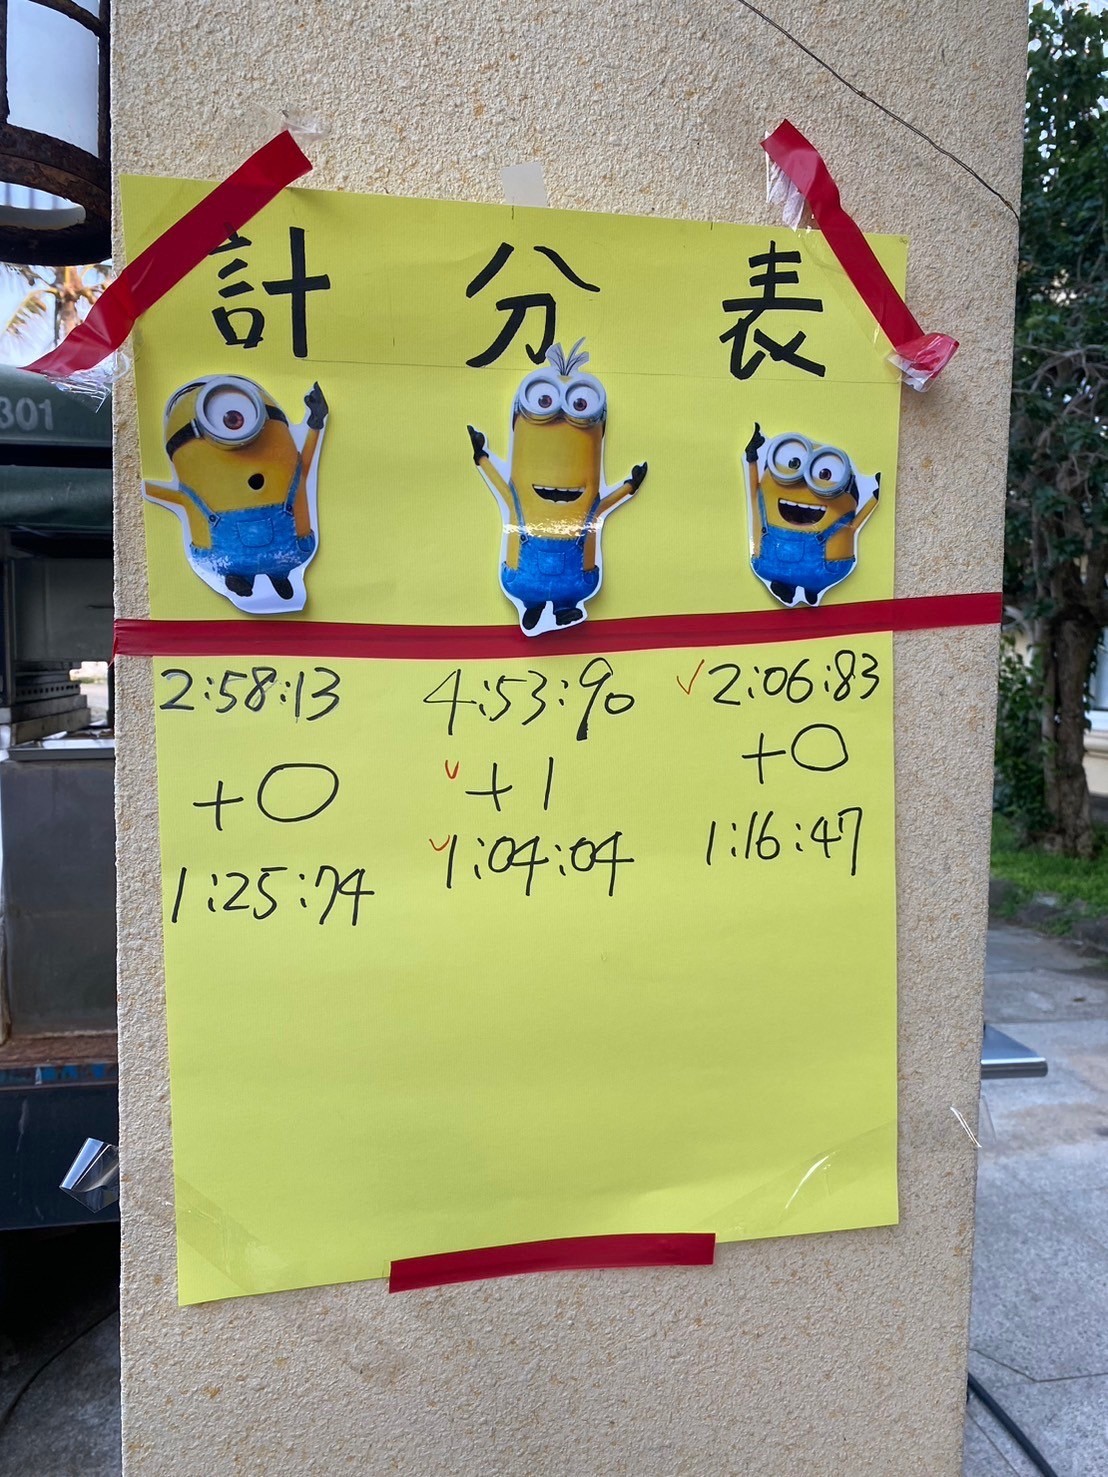 計 分 表
301
2:58:13 4:53:90 ✓2:06:83
+0 ✓+1 +0
1:25:74 ✓1:04:04 1:16:47